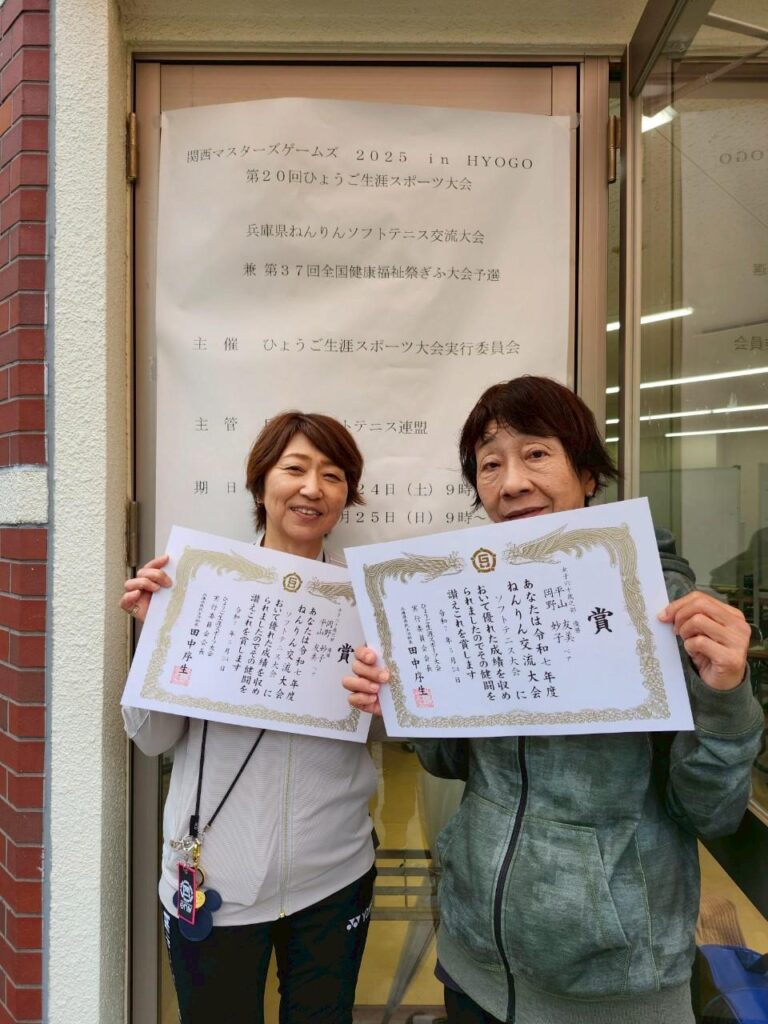 関西マスターズゲームズ 2025 in HYOGO
第20回ひょうご生涯スポーツ大会
兵庫県ねんりんソフトテニス交流大会
兼 第37回全国健康福祉祭ぎふ大会予選
主 催 ひょうご生涯スポーツ大会実行委員会
主 管
テニス連盟
期 日
24日(土)9時
月25日(日)9時~
賞
岡野 妙子
平山 友美 ペア
あなたは令和七年度
ねんりん交流大会
ソフトテニス大会 に
おいて優れた成績を収め
られましたのでその健闘を
讃えこれを賞します
ひょうご生涯スポーツ大会
実行委員会会長 田中序生
賞
女子六十歳之部 優勝
平山 友美
岡野 妙子 ペア
あなたは令和七年度
ねんりん交流大会
ソフトテニス大会 に
おいて優れた成績を収め
られましたのでその健闘を
讃えこれを賞します
令和七年五月二十四日
ひょうご生涯スポーツ大会
実行委員会会長
兵庫県ソフトテニス連盟
田中序生